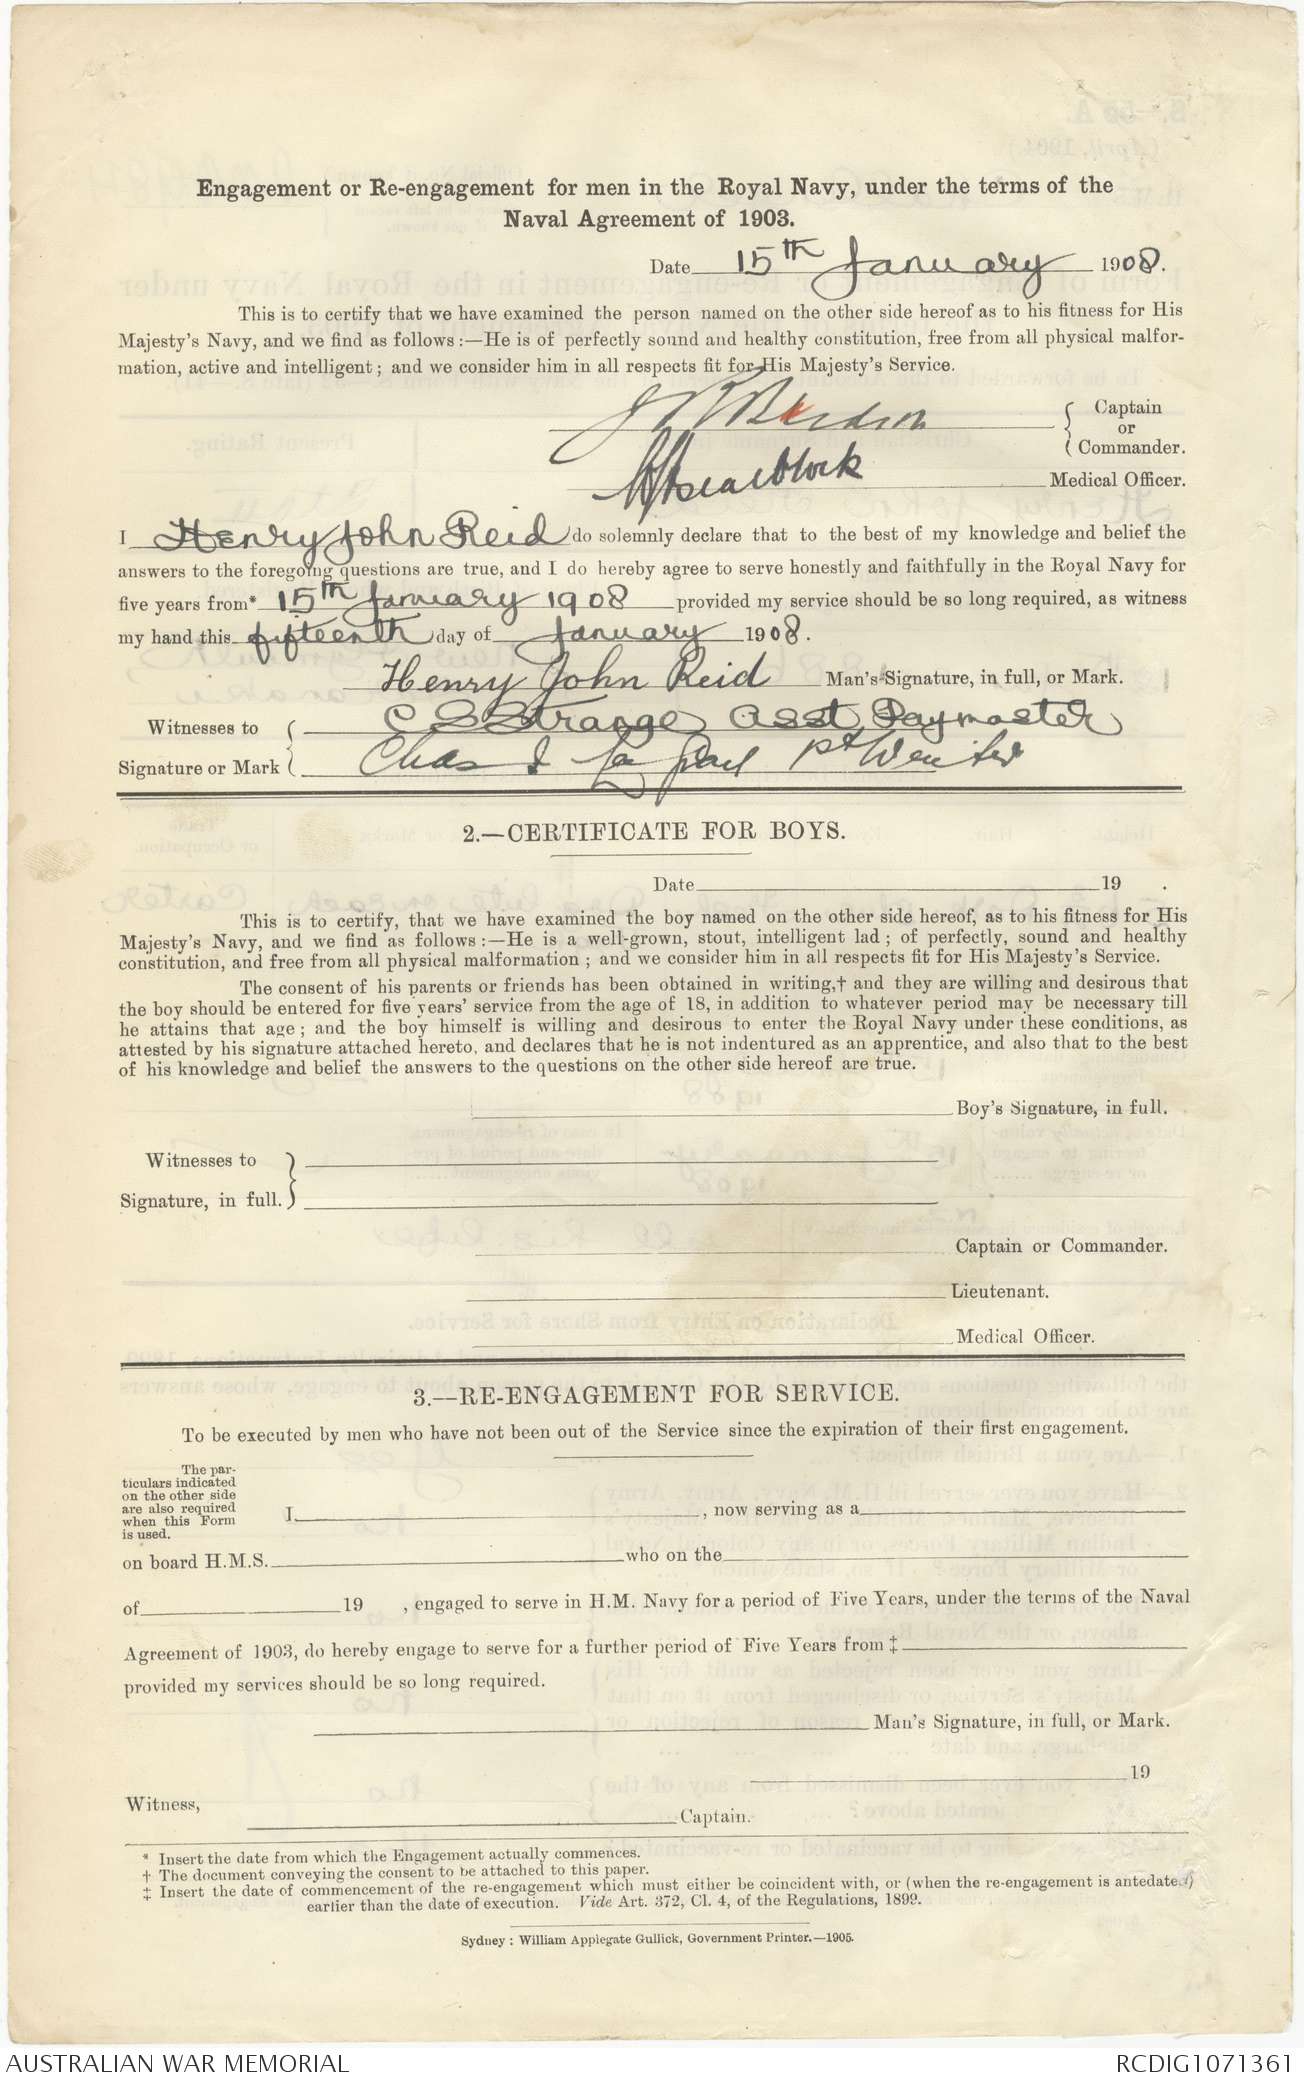 Engagement or Re-engagement for men in the Royal Navy, under the terms of the
Naval Agreement of 1903.
Date 15th January 1908.
This is to certify that we have examined the person named on the other side hereof as to his fitness for His
Majesty's Navy, and we find as follows:—He is of perfectly sound and healthy constitution, free from all physical malfor-
mation, active and intelligent; and we consider him in all respects fit for His Majesty's Service.
Captain
or
Commander.
Medical Officer.
I Henry John Reid do solemnly declare that to the best of my knowledge and belief the
answers to the foregoing questions are true, and I do hereby agree to serve honestly and faithfully in the Royal Navy for
five years from* 15th January 1908 provided my service should be so long required, as witness
my hand this fifteenth day of January 1908.
Henry John Reid Man's Signature, in full, or Mark.
Witnesses to C S Strange Asst Paymaster
Signature or Mark Chas
2.—CERTIFICATE FOR BOYS.
Date 19 .
This is to certify, that we have examined the boy named on the other side hereof, as to his fitness for His
Majesty's Navy, and we find as follows:—He is a well-grown, stout, intelligent lad; of perfectly, sound and healthy
constitution, and free from all physical malformation; and we consider him in all respects fit for His Majesty's Service.
The consent of his parents or friends has been obtained in writing,† and they are willing and desirous that
the boy should be entered for five years' service from the age of 18, in addition to whatever period may be necessary till
he attains that age; and the boy himself is willing and desirous to enter the Royal Navy under these conditions, as
attested by his signature attached hereto, and declares that he is not indentured as an apprentice, and also that to the best
of his knowledge and belief the answers to the questions on the other side hereof are true.
Boy's Signature, in full.
Witnesses to
Signature, in full.
Captain or Commander.
Lieutenant.
Medical Officer.
3.—RE-ENGAGEMENT FOR SERVICE.
To be executed by men who have not been out of the Service since the expiration of their first engagement.
The par-
ticulars indicated
on the other side
are also required
when this Form
is used.
I , now serving as a
on board H.M.S. who on the
of 19 , engaged to serve in H.M. Navy for a period of Five Years, under the terms of the Naval
Agreement of 1903, do hereby engage to serve for a further period of Five Years from ‡
provided my services should be so long required.
Man's Signature, in full, or Mark.
19
Witness,
Captain.
* Insert the date from which the Engagement actually commences.
† The document conveying the consent to be attached to this paper.
‡ Insert the date of commencement of the re-engagement which must either be coincident with, or (when the re-engagement is antedated)
earlier than the date of execution. Vide Art. 372, Cl. 4, of the Regulations, 1899.
Sydney: William Applegate Gullick, Government Printer.—1905.
AUSTRALIAN WAR MEMORIAL
RCDIG1071361